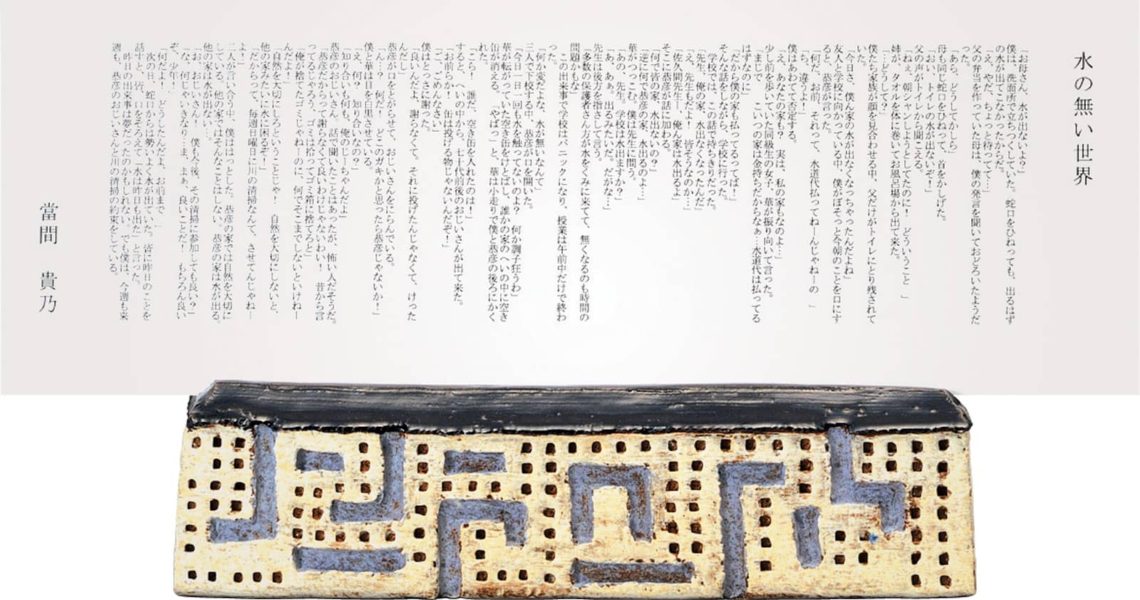 水の無い世界
「お母さん、水が出ないよう」
僕は、洗面所で立ちつくしていた。蛇口をひねっても、出るはず
の水が出てこなかったからだ。
「え、やだ、ちょっと待ってて…」
父の弁当を作っていた母は、僕の発言を聞いておどろいたようだ
った。
「あら、どうしてかしら」
母も同じ蛇口をひねって、首をかしげた。
「おい、トイレの水が出ないぞ！」
父の声がトイレから聞こえる。
「やだねぇ、朝シャンしようとしてたのに！　どういうこと　」
姉が、タオルを体に巻いてお風呂場から出て来た。
「どうしてかな？」
僕たち家族が顔を見合わせる中、父だけがトイレにとり残されて
いた。
「今日さ、僕ん家の水が出なくなっちゃったんだよね」
友人と学校に向かっている中、僕がぼそっと今朝のことを口にす
ると、恭彦が言った。
「何だ、お前、それって、水道代払ってねーんじゃねーの　」
「ち、違うよ！」
僕はあわてて否定する。
「え、あなたの家も？　実は、私の家もなのよ…」
少し前を歩いていた同級生の女子、華が振り向いて言った。
「まじ？　こいつの家は金持ちだからなぁ…水道代は払ってる
はずなのに」
「だから僕の家も払ってるってば！」
そんな話をしながら、学校に行った。
学校では、この話で持ちきりだった。
「先生、俺の家、水出なくなったんだ」
「え、先生もだよ！　皆そうなのか…」
「佐久間先生ー、俺ん家は水出るよ」
そこに恭彦が話に加わる。
「何で皆の家、水出ないの？」
「逆に何で恭彦の家、水出るのよ…」
華がつっこむ。僕は先生に問う。
「あの、先生。学校は水出ますか？」
「あ、あぁ。出るみたいだ。だがな…」
先生は後方を指さして言う。
「多数の保護者さん方が水をくみに来てて、無くなるのも時間の
問題」
この出来事で学校はパニックになり、授業は午前中だけで終わ
った。
「何か変だよな、水が無いなんて」
三人で下校する中、恭彦が口を開いた。
「今日一回も水を触ってないのよ？　何か調子狂うわ」
華が転がっていた空き缶をけって、誰かの家のへいの中に空き
缶が消える。「やばっ」と、華は小走りで僕と恭彦の後ろにかく
れた。
「こら！　誰だ、空き缶を入れたのは！」
すると、へいの中から、七十代前後のおじいさんが出て来た。
「お前らな！　缶は投げる物じゃないんだぞ！」
「ご、ごめんなさい」
僕はとっさに謝った。
「良いんだよ、謝らなくて。それに投げたんじゃなくて、けった
んだし」
恭彦が口をとがらせて、おじいさんをにらんでいる。
「あ？　何だ？　どこのガキかと思ったら恭彦じゃないか！」
僕と華は目を白黒させている。
「え、何？　知り合いなの？」
「知り合いも何も、俺のじーちゃんだよ」
恭彦のおじいさん。話で聞いたことはあったが、怖い人だそうだ。
「恭彦だからって、謝らなくて良いわけじゃないぃ！　昔から言
ってるじゃろう、ゴミは拾ってゴミ箱に捨てろと」
「俺が捨てたゴミじゃねーのに、何でそこまでしないといけねー
んだよ！」
「自然を大切にしろということじゃ！　自然を大切にしないと、
他の家みたいに水に困るぞ！」
「だからって、毎週日曜日に川の清掃なんて、させてんじゃねー
よ！」
二人が言い合う中、僕ははっとした。恭彦の家では自然を大切に
している。他の家ではそんなことはしない。恭彦の家は水が出る。
他の家は水が出ない…。
「お、おじいさん！　僕も今後、その清掃に参加しても良い？」
「な、何じゃいきなり…ま、まぁ、良いことだ！　もちろん良い
ぞ、少年！」
「何だよ！　どうしたんだよ、お前まで」
次の日、蛇口からは勢いよく水が出ていた。皆に昨日のことを
話すが、皆、口をそろえて「水は昨日も出た」と言った。
昨日の出来事は夢だったのかもしれない。でも僕は、今週も来
週も、恭彦のおじいさんと川の清掃の約束をしている。
當間　貴乃